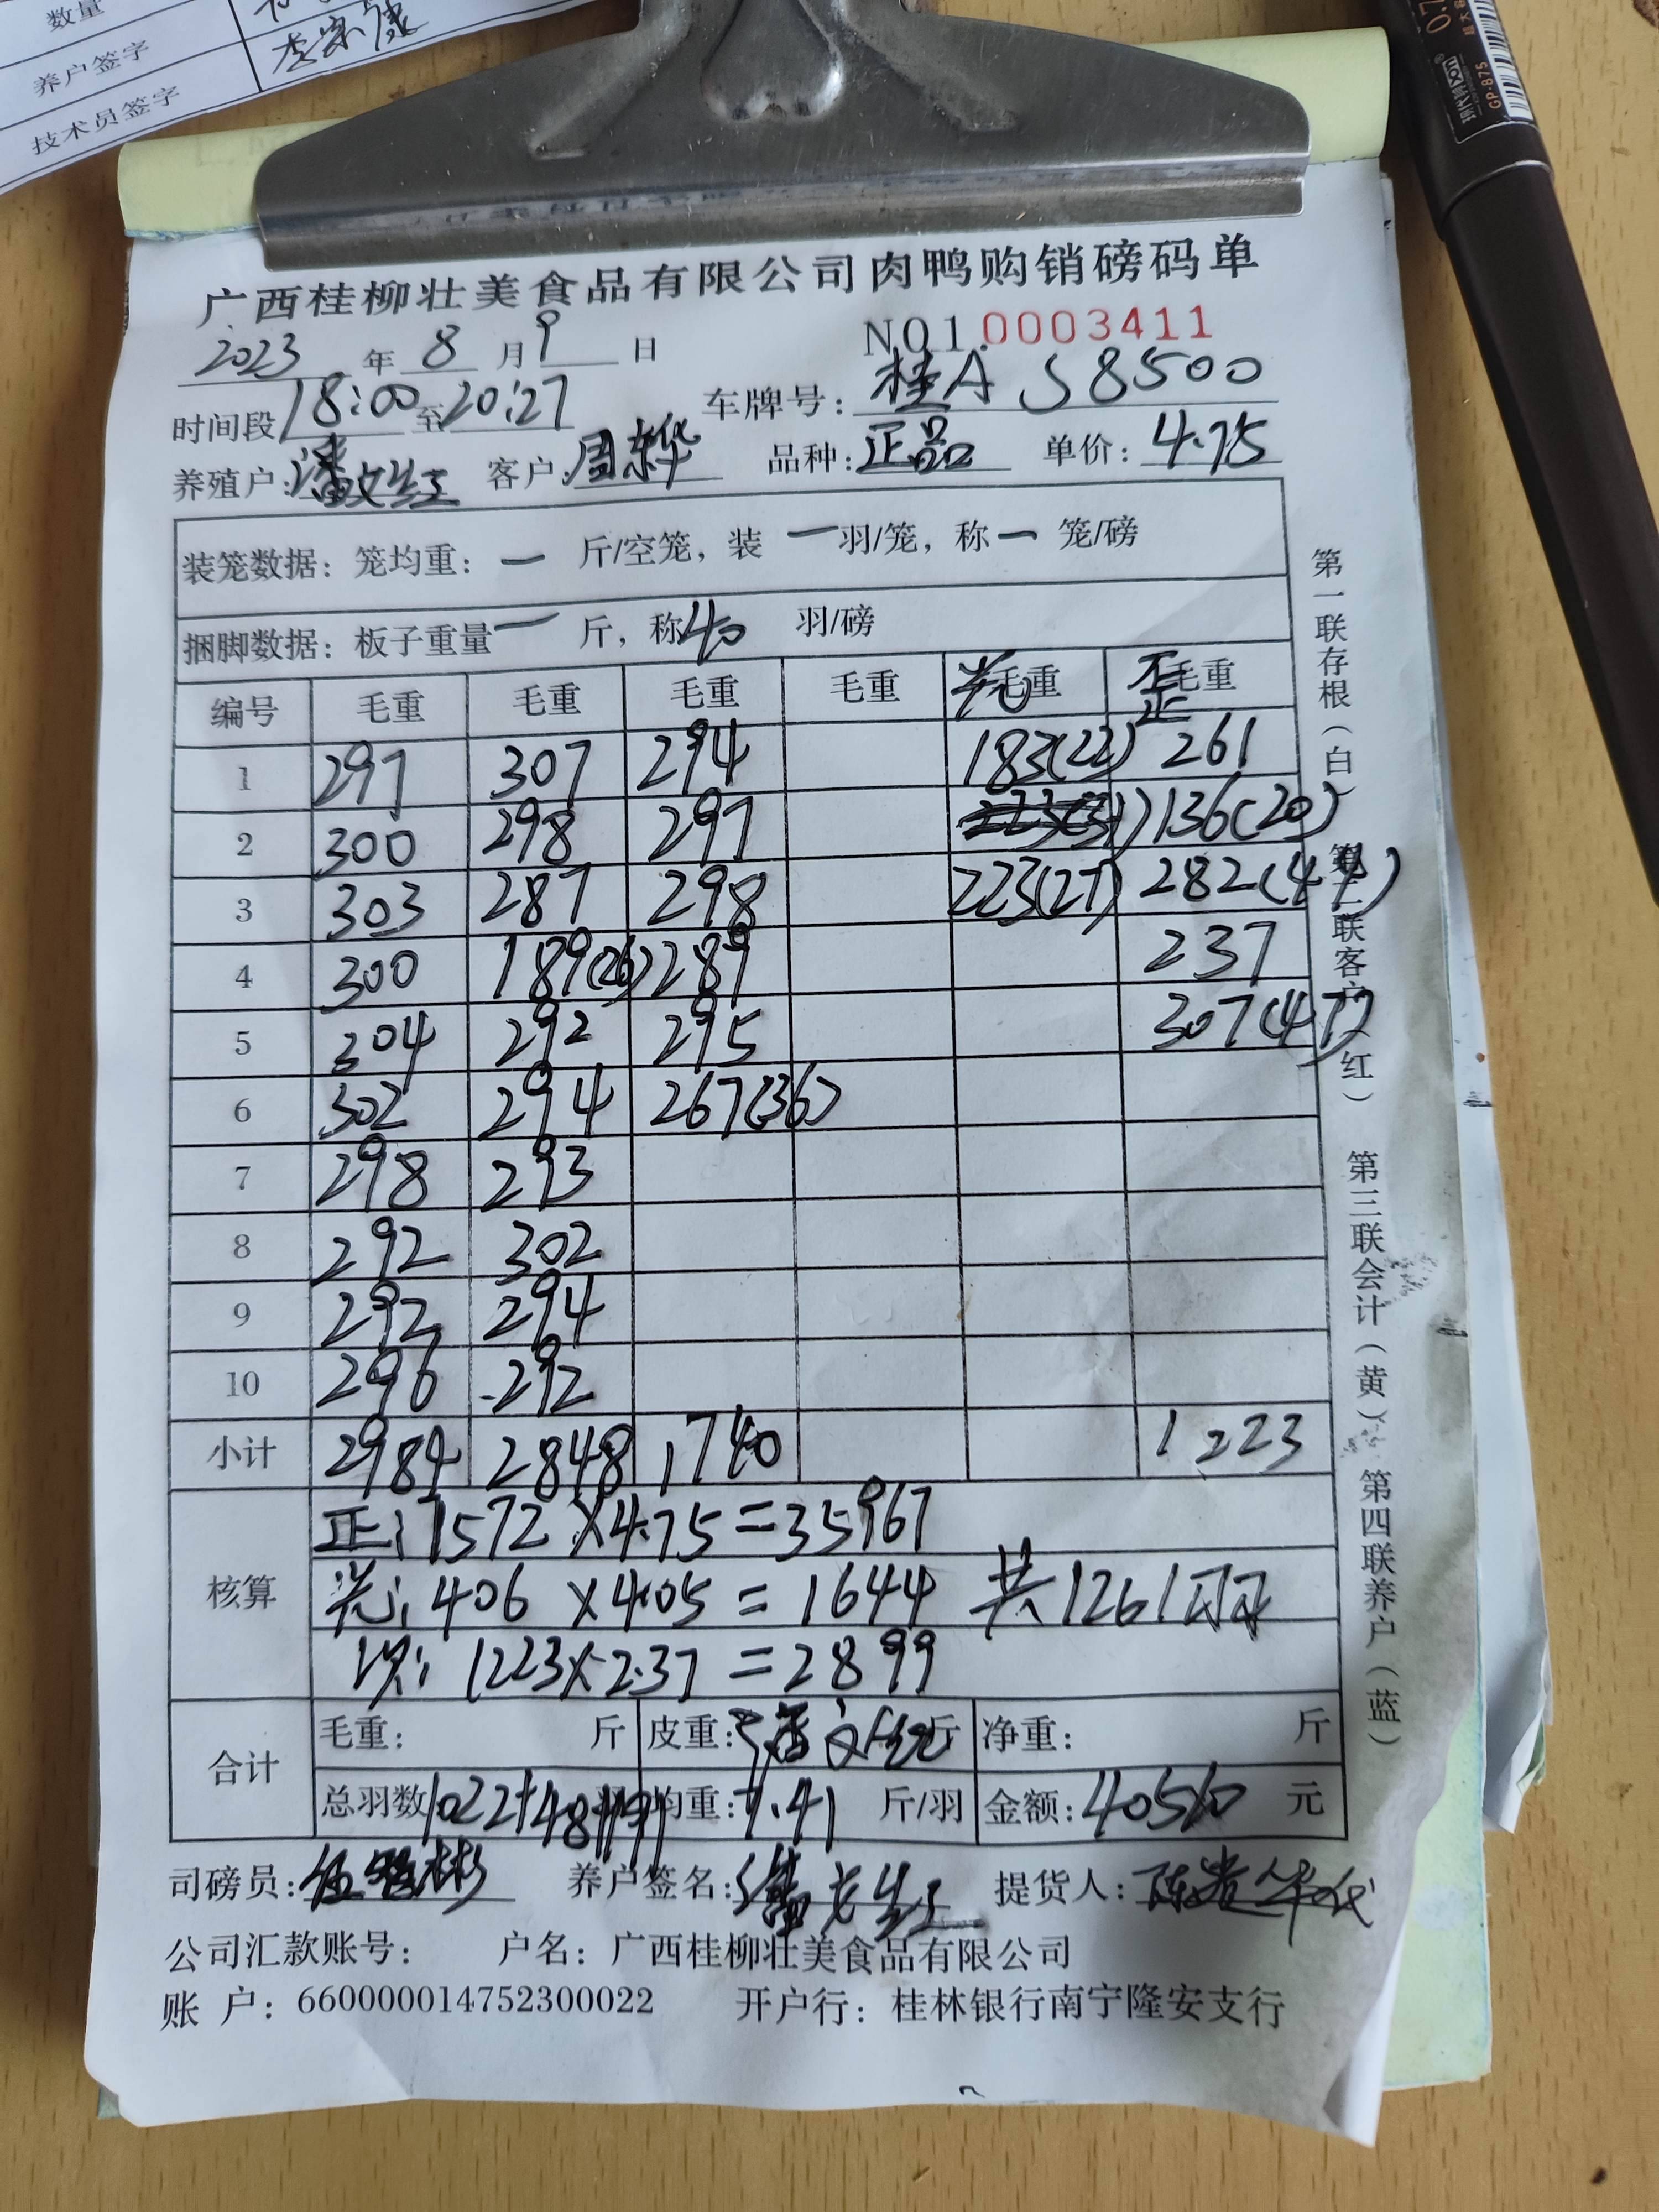 数量
养户签字
技术员签字
广西桂柳壮美食品有限公司肉鸭购销磅码单
2023 年 8 月 9 日 NO1.0003411
时间段 18:00 至 20:27 车牌号: 桂A S8500
养殖户: 潘文生 客户: 周桦 品种: 正品 单价: 4.75
装笼数据: 笼均重: 一 斤/空笼, 装 一 羽/笼, 称 一 笼/磅
捆脚数据: 板子重量 一 斤, 称 40 羽/磅
编号 毛重 毛重 毛重 毛重 光毛重 毛重
1 297 307 294 183(22) 261
2 300 298 297 136(20)
3 303 287 298 223(27) 282
4 300 189(26) 289 237
5 304 292 295 307(47)
6 302 294 267(36)
7 298 293
8 292 302
9 292 294
10 296 292
小计 2984 2848 1740 1223
核算
正: 7572 ×4.75 =35967
光: 406 ×4.05 = 1644 共1261羽
次: 1223×2.37 =2899
合计
毛重: 斤 皮重: 斤 净重: 斤
总羽数 1022+48+191 均重: 7.41 斤/羽 金额: 40510 元
司磅员: 养户签名: 提货人:
公司汇款账号: 户名: 广西桂柳壮美食品有限公司
账 户: 660000014752300022 开户行: 桂林银行南宁隆安支行
第一联存根(白)
第二联客户(红)
第三联会计(黄)
第四联养户(蓝)
GP-875